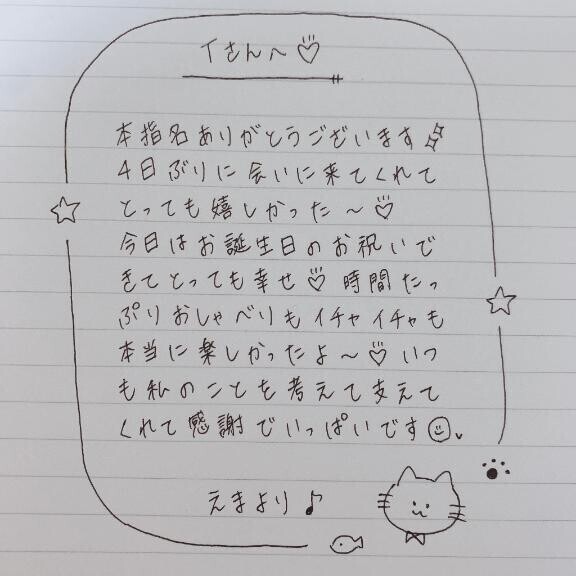 Tさんへ♡
本指名ありがとうございます
4日ぶりに会いに来てくれて
とっても嬉しかった〜♡
今日はお誕生日のお祝いで
きてとっても幸せ♡時間たっ
ぷりおしゃべりもイチャイチャも
本当に楽しかったよ〜♡いつ
も私のことを考えて支えて
くれて感謝でいっぱいです
えまより♪